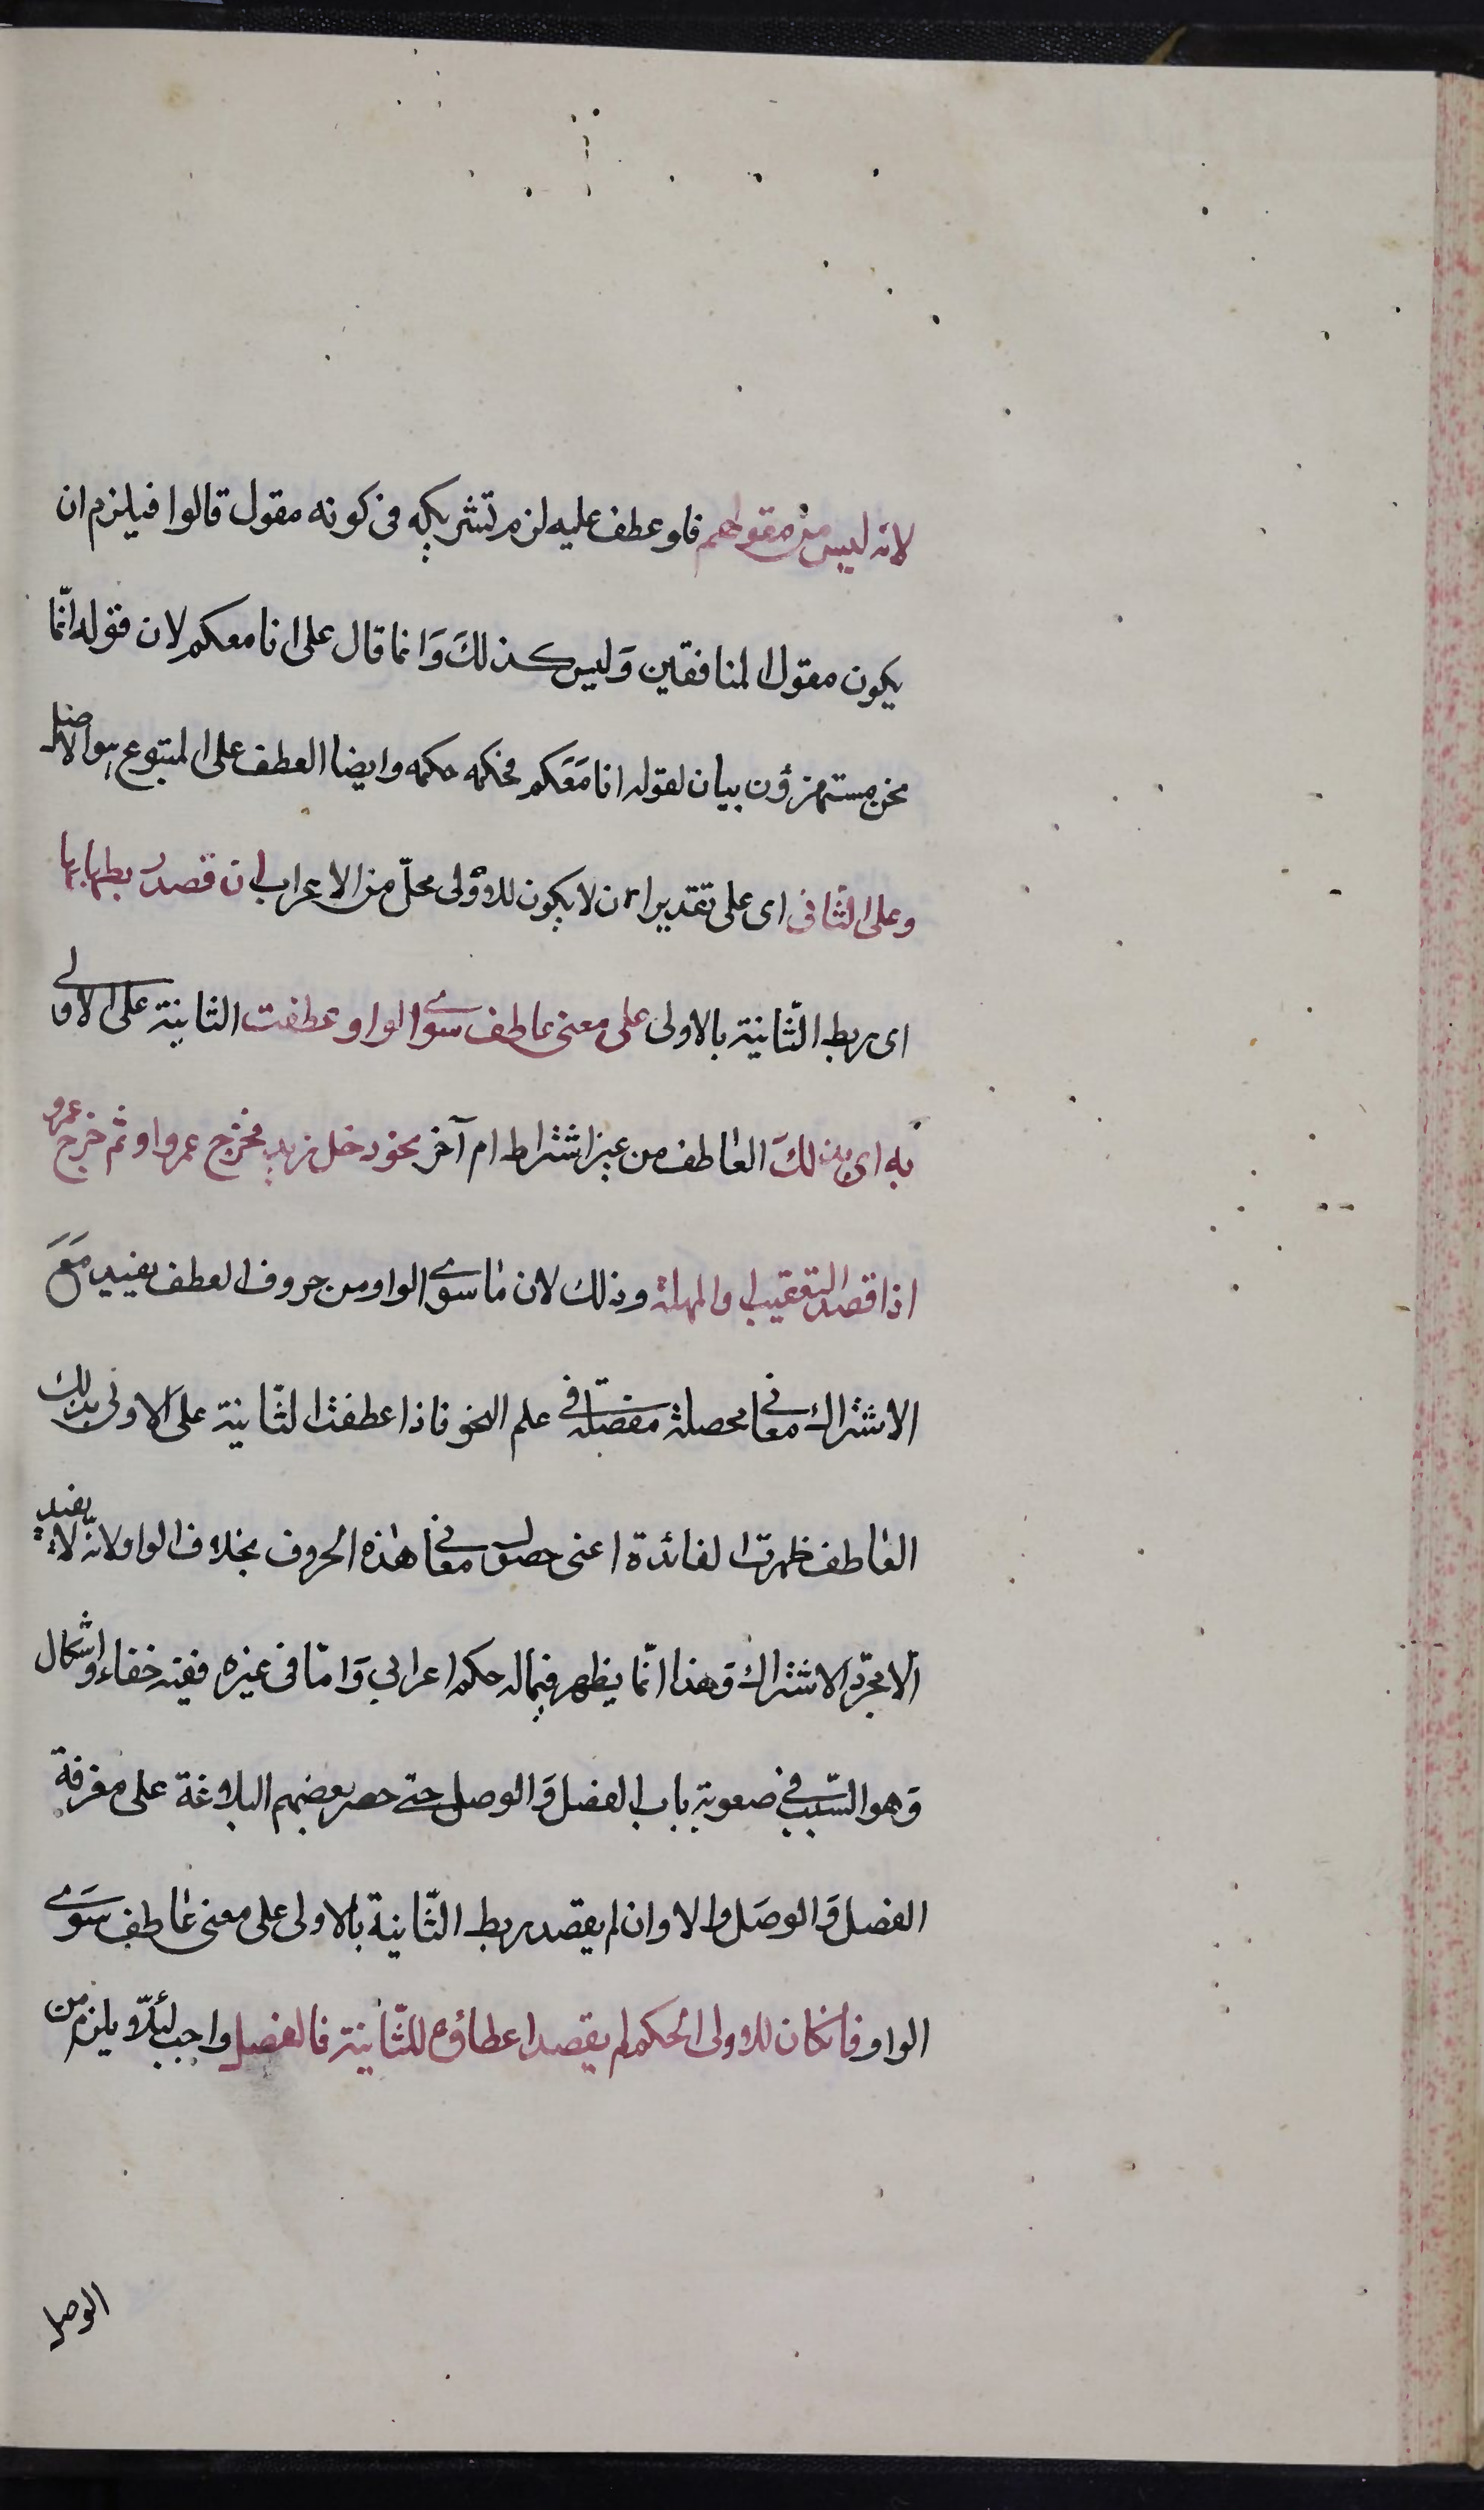 لانه ليس من مقولهم فلو عطف عليه لزم تشريكه فى كونه مقول قالوا فيلزم ان
يكون مقول المنافقين وَليس كذلكَ وَانما قال على انا معكم لان قوله انّما
نحن مستهزؤن بيان لقوله انا مَعَكم فحكمه حكمه وايضا العطف على المتبوع هو الاصل
وعلى الثانى اى على تقدير ان لا يكون للاولى محلّ من الاعراب ان قصد ربطها بها
اى ربط الثّانية بالاولى على معنى عاطف سوى الواو عطفت الثانية على الاولى
به اى بذلكَ العاطف من غير اشتراط امر آخر نحو دخل زيد فخرج عمرو او ثم خرج عمرو
اذا قصد التعقيب او المهلة وذلك لان ما سوى الواو من حروف العطف يفيد مَعَ
الاشتراك معانى محصلة مفصّلة فى علم النحو فاذا عطفت الثّانية على الاولى بذلك
العاطف ظهرت الفائدة اعنى حصول معانى هذه الحروف بخلاف الواو لانّه لا يفيد
الا مجرّد الاشتراك وَهذا انّما يظهر فيما له حكم اعرابى وَامّا فى غيره ففيه خفاء واشكال
وَهو السّبب فى صعوبة باب الفصل وَالوصل حتى حصر بعضهم البلاغة على معرفة
الفصل وَالوصَل والا وان لم يقصد ربط الثّانية بالاولى على معنى عاطف سَوى
الواو فان كان للاولى حكم لم يقصد اعطاؤه للثّانية فالفصل واجب لئلّا يلزم من
الوصل